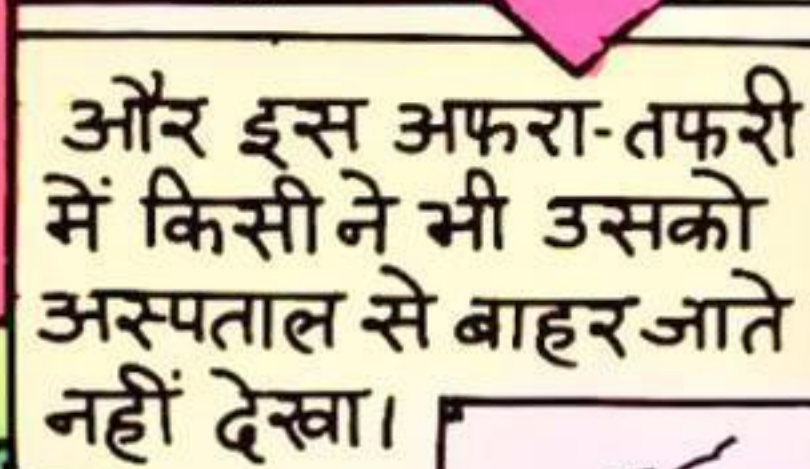 और इस अफरा-तफरी
में किसी ने भी उसको
अस्पताल से बाहर जाते
नहीं देखा।